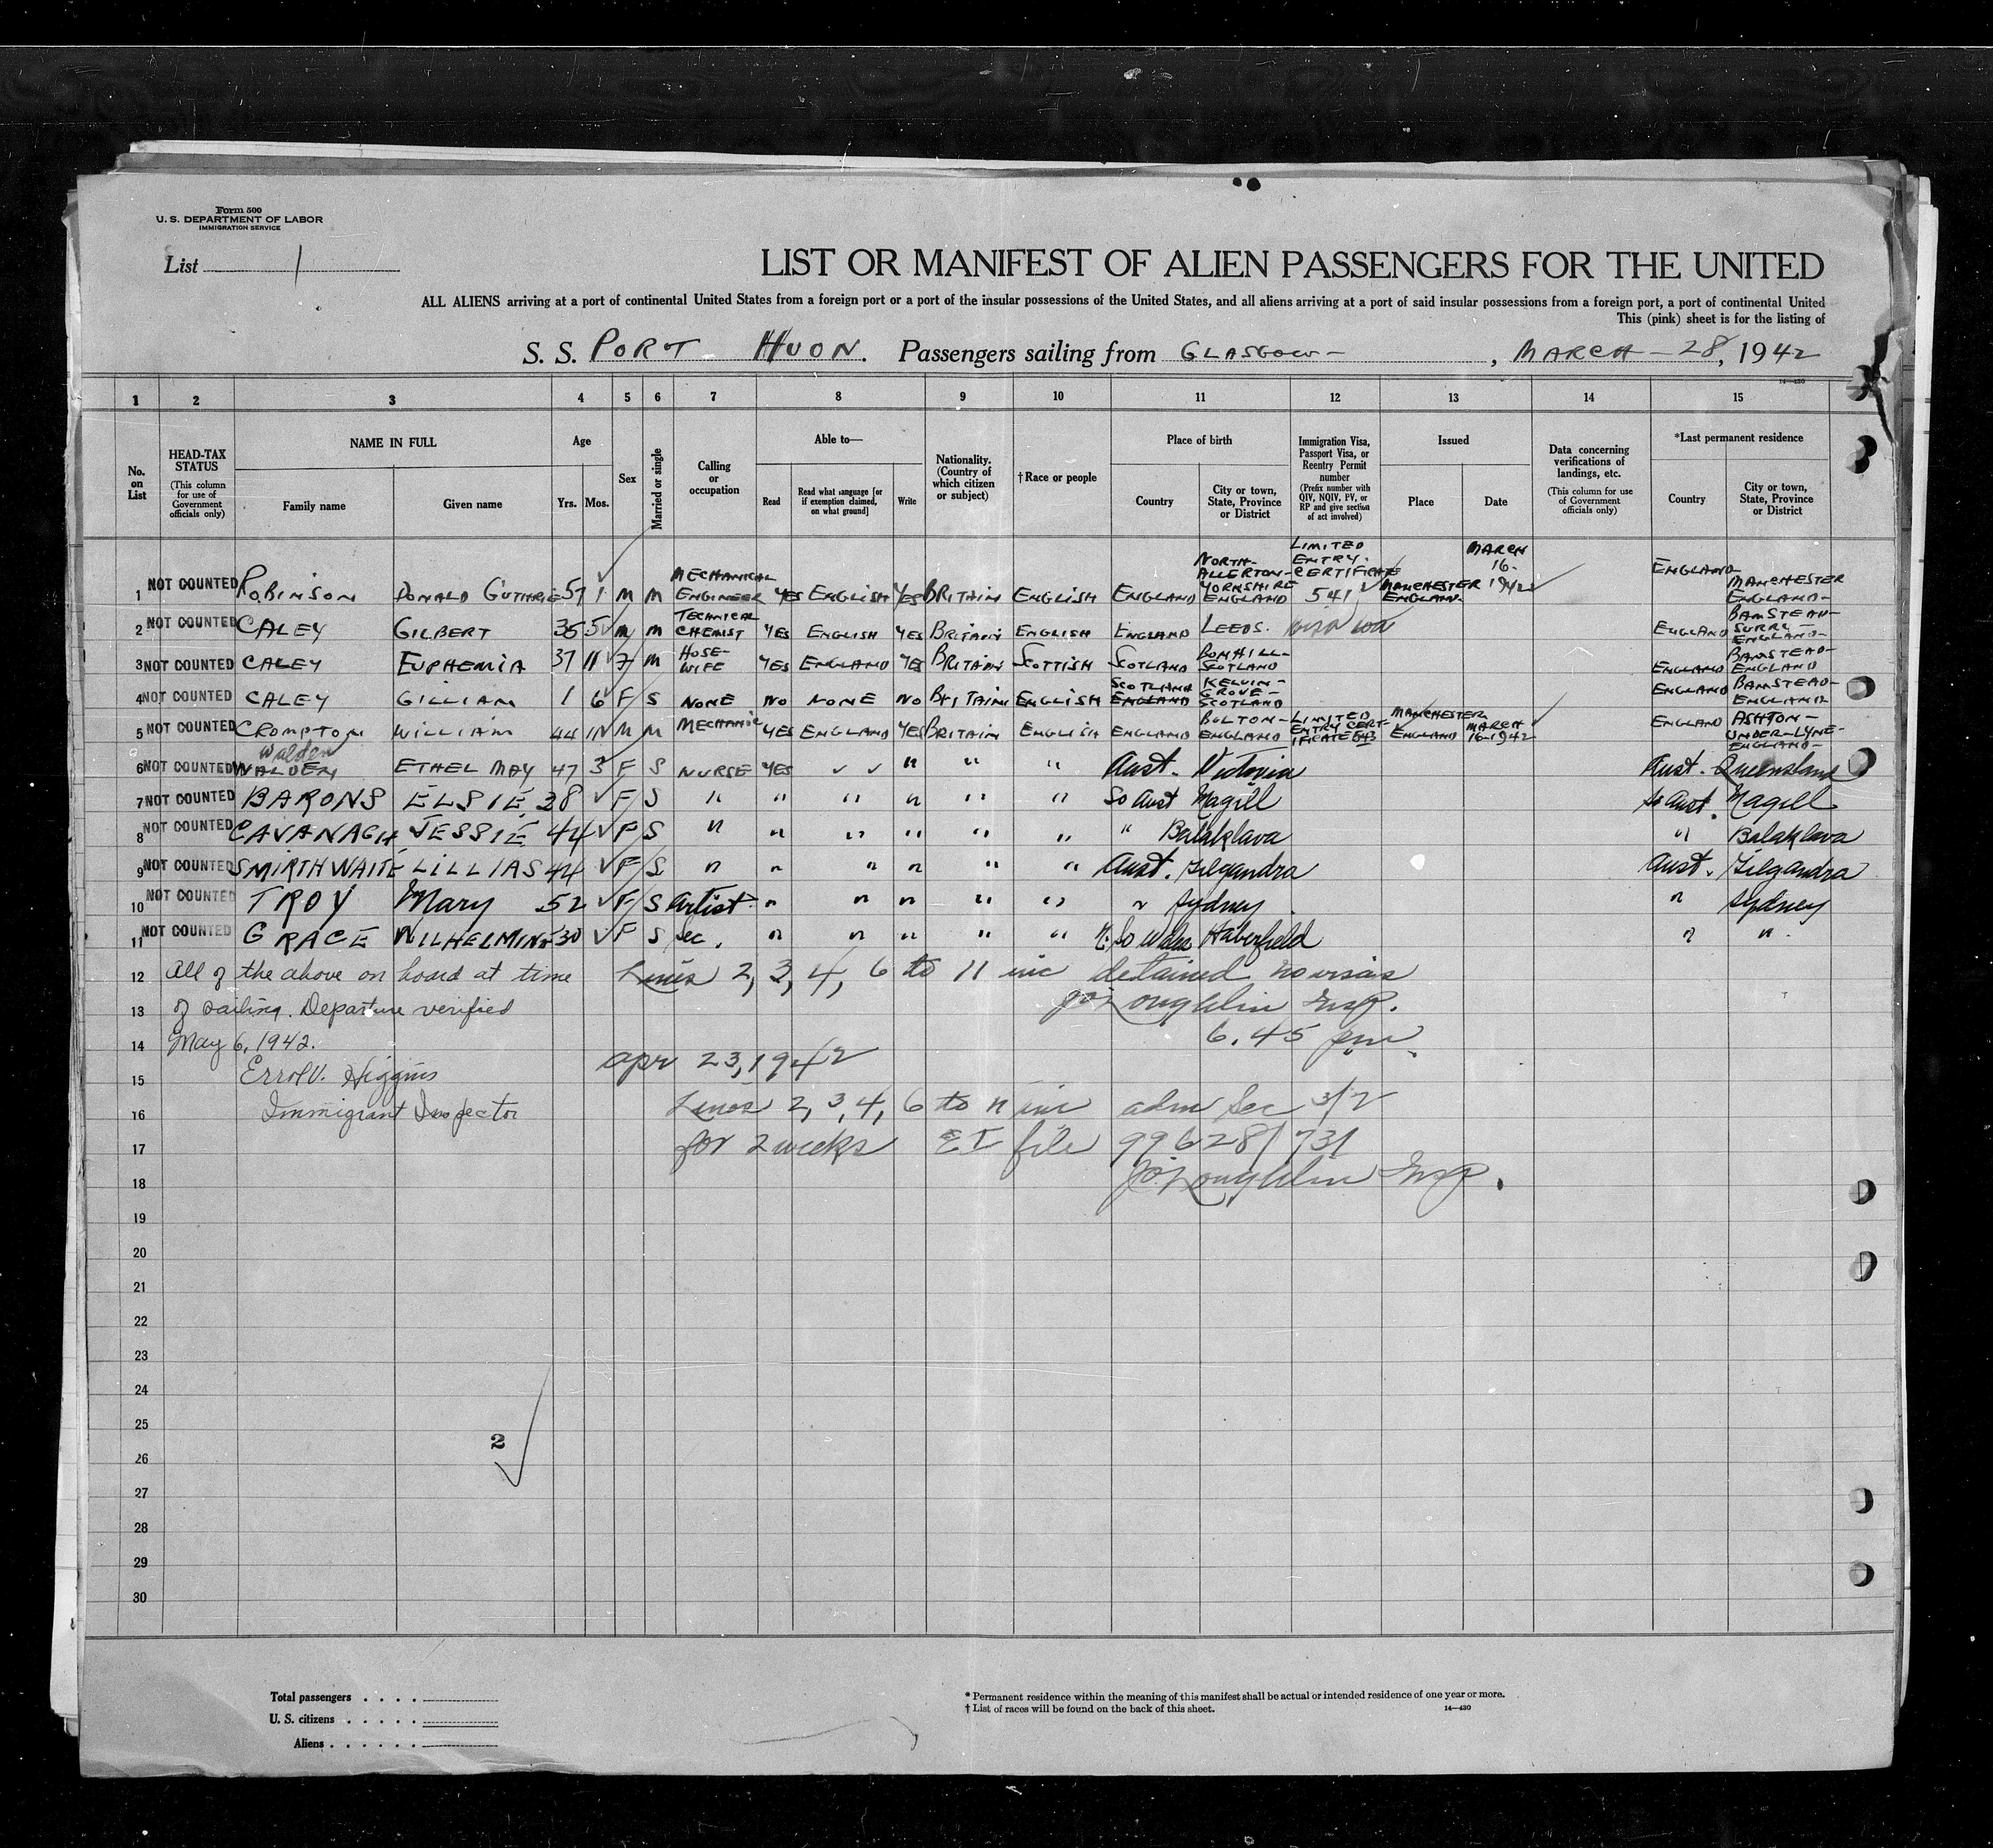 Form 500
U. S. DEPARTMENT OF LABOR
IMMIGRATION SERVICE
List 1
LIST OR MANIFEST OF ALIEN PASSENGERS FOR THE UNITED
ALL ALIENS arriving at a port of continental United States from a foreign port or a port of the insular possessions of the United States, and all aliens arriving at a port of said insular possessions from a foreign port, a port of continental United
This (pink) sheet is for the listing of
S. S. PORT HUON. Passengers sailing from GLASGOW - , MARCH - 28, 1942
14—430
1 2 3 4 5 6 7 8 9 10 11 12 13 14 15
No. on List
HEAD-TAX STATUS (This column for use of Government officials only)
NAME IN FULL
Family name
Given name
Age
Yrs. Mos.
Sex
Married or single
Calling or occupation
Able to—
Read
Read what language [or if exemption claimed, on what ground]
Write
Nationality. (Country of which citizen or subject)
†Race or people
Place of birth
Country
City or town, State, Province or District
Immigration Visa, Passport Visa, or Reentry Permit number (Prefix number with QIV, NQIV, PV, or RP and give section of act involved)
Issued
Place
Date
Data concerning verifications of landings, etc. (This column for use of Government officials only)
*Last permanent residence
Country
City or town, State, Province or District
1 NOT COUNTED ROBINSON DONALD GUTHRIE 57 1 M M MECHANICAL ENGINEER YES ENGLISH YES BRITAIN ENGLISH ENGLAND NORTH-ALLERTON- YORKSHIRE ENGLAND LIMITED ENTRY. CERTIFICATE 541 MANCHESTER ENGLAND. MARCH 16- 1942 ENGLAND MANCHESTER ENGLAND-
2 NOT COUNTED CALEY GILBERT 36 5 M M TECHNICAL CHEMIST YES ENGLISH YES BRITAIN ENGLISH ENGLAND LEEDS. ENGLAND BAMSTEAD- SURRY- ENGLAND-
3 NOT COUNTED CALEY EUPHEMIA 37 11 F M HOSE-WIFE YES ENGLAND YES BRITAIN SCOTTISH SCOTLAND BONHILL- SCOTLAND ENGLAND BAMSTEAD- ENGLAND
4 NOT COUNTED CALEY GILLIAN 1 6 F S NONE NO NONE NO BRITAIN ENGLISH SCOTLAND ENGLAND KELVIN-GROVE- SCOTLAND ENGLAND BAMSTEAD- ENGLAND
5 NOT COUNTED CROMPTON WILLIAM 44 11 M M MECHANIC YES ENGLAND YES BRITAIN ENGLISH ENGLAND BOLTON- ENGLAND LIMITED ENTRY CERT-IFICATE 543 MANCHESTER ENGLAND MARCH 16-1942 ENGLAND ASHTON-UNDER-LYNE- ENGLAND-
Walden
6 NOT COUNTED WALDEN ETHEL MAY 47 3 F S NURSE YES ✓ ✓ " " " Aust. Victoria Aust. Queensland
7 NOT COUNTED BARONS ELSIE 38 ✓ F S " " " " " " So Aust Magill So Aust. Magill
8 NOT COUNTED CAVANAGH JESSIE 44 ✓ F S " " " " " " " Balaklava " Balaklava
9 NOT COUNTED SMIRTHWAITE LILLIAS 44 ✓ F S " " " " " " Aust. Gilgandra Aust. Gilgandra
10 NOT COUNTED TROY Mary 52 ✓ F S Artist " " " " " " Sydney " Sydney
11 NOT COUNTED GRACE WILHELMINA 30 ✓ F S Sec. " " " " " N. So Wales Haberfield " "
12 All of the above on board at time Lines 2, 3, 4, 6 to 11 inc detained no visas
13 of sailing. Departure verified J O'Loughlin Insp.
14 May 6, 1942. 6.45 pm
15 Errol V. Higgins Apr 23, 1942
16 Immigrant Inspector Lines 2, 3, 4, 6 to 11 inc adm Sec 3/2
17 for 2 weeks EI file 99628/731
18 J O'Loughlin Insp.
19
20
21
22
23
24
25
2 ✓
26
27
28
29
30
Total passengers . . . .
U. S. citizens . . . . .
Aliens . . . . . .
* Permanent residence within the meaning of this manifest shall be actual or intended residence of one year or more.
† List of races will be found on the back of this sheet. 14—430